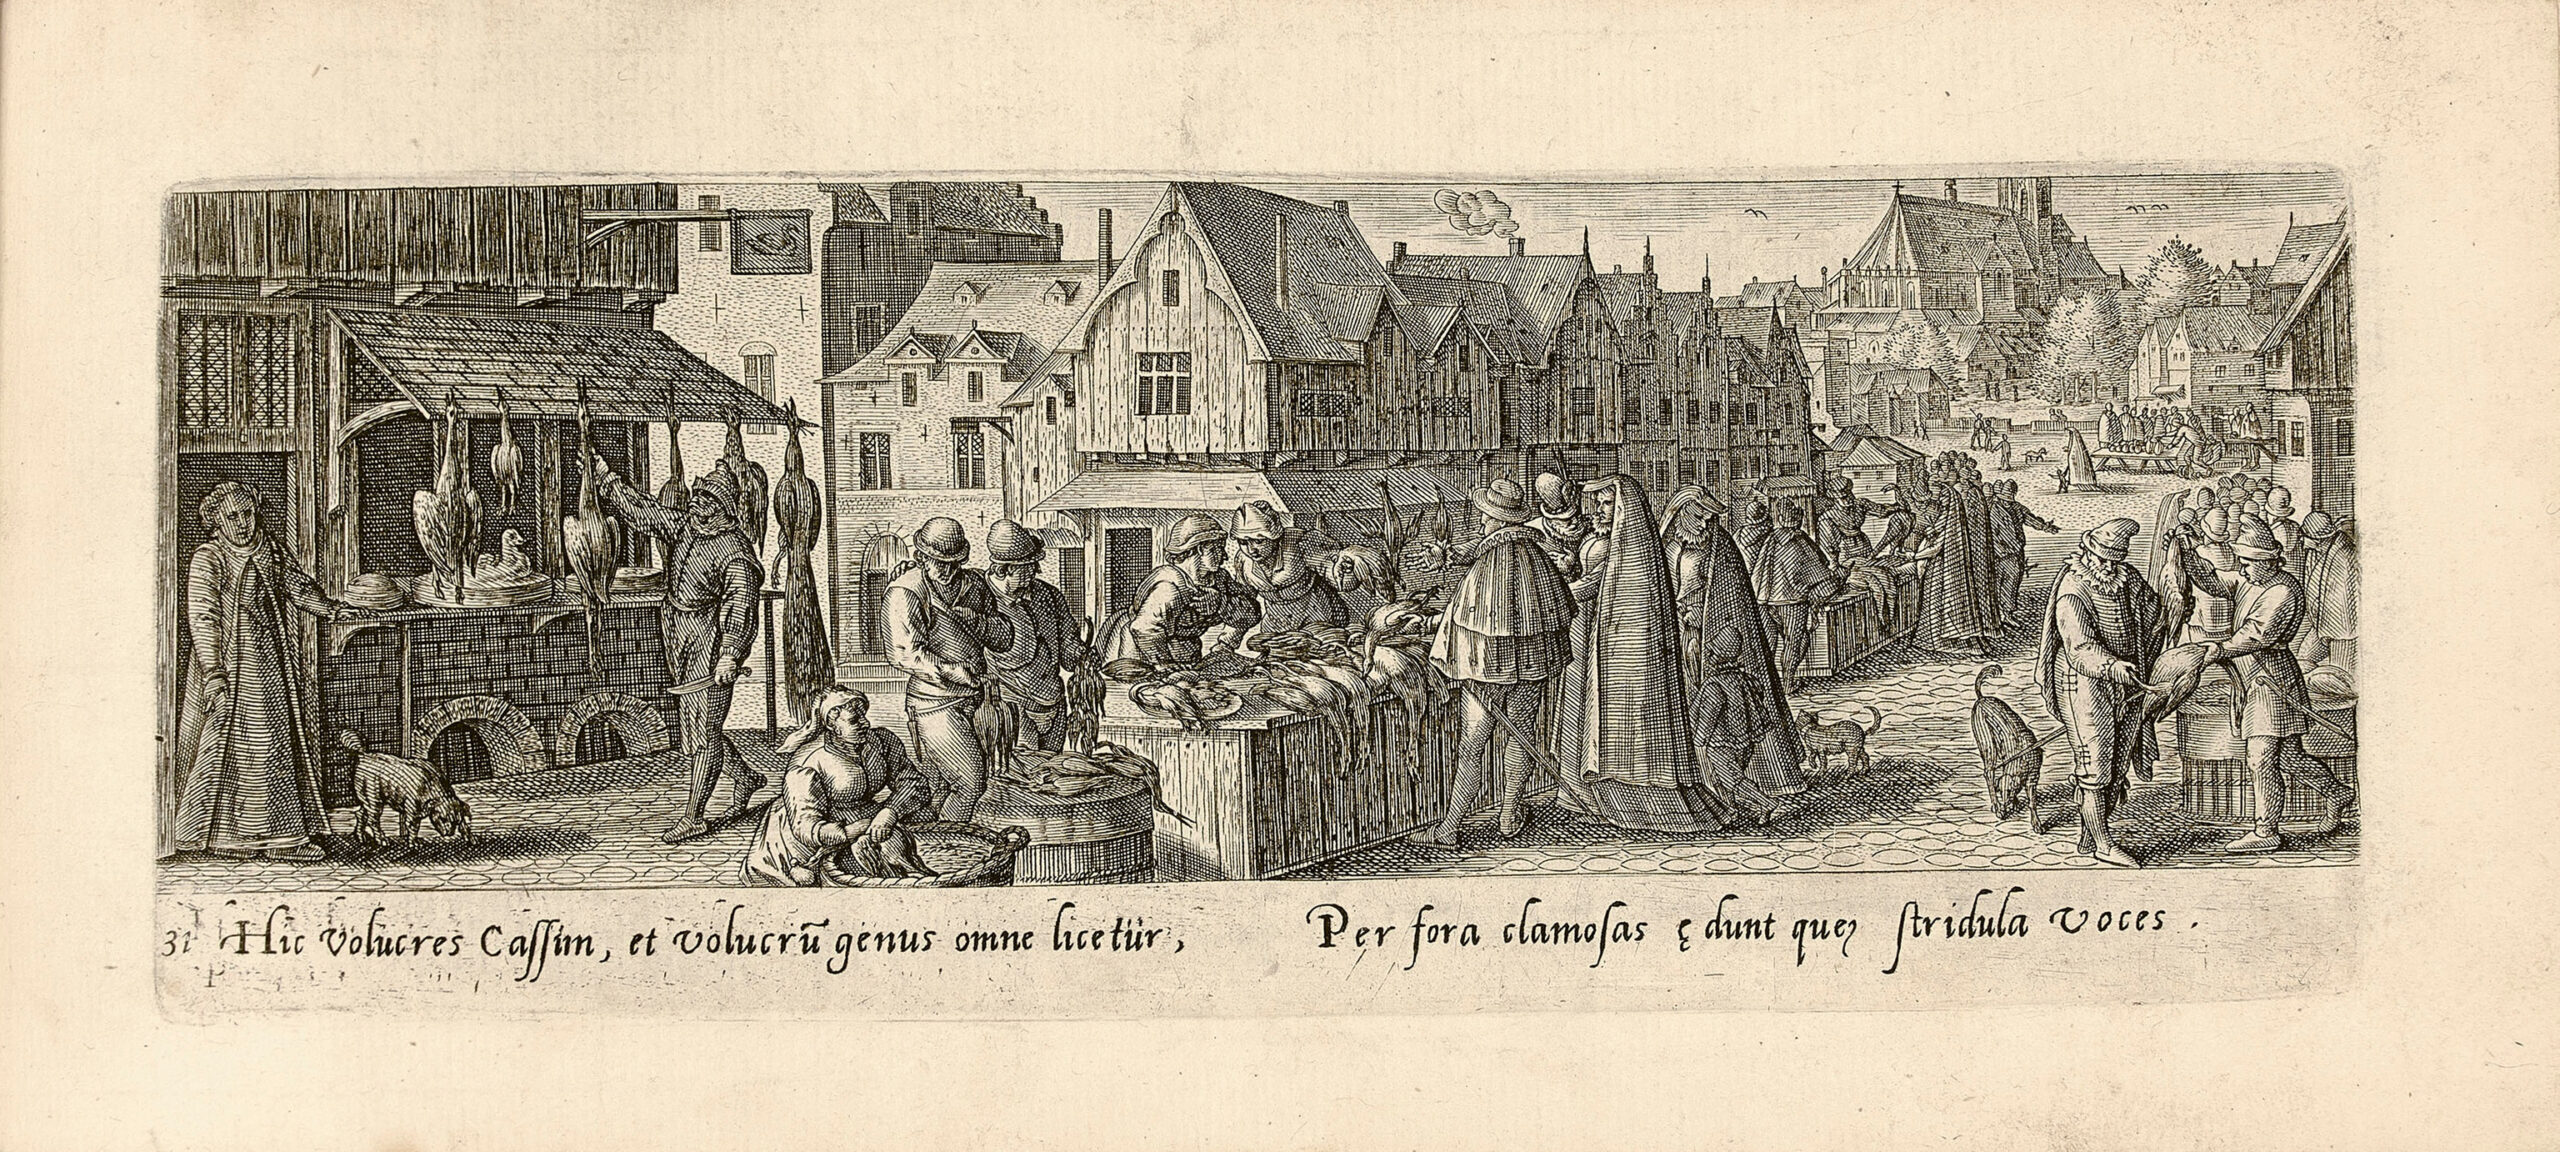 31 Hic Volucres Caſſim, et volucrũ genus omne licetur,
Per fora clamoſas ędunt queȝ ſtridula voces.